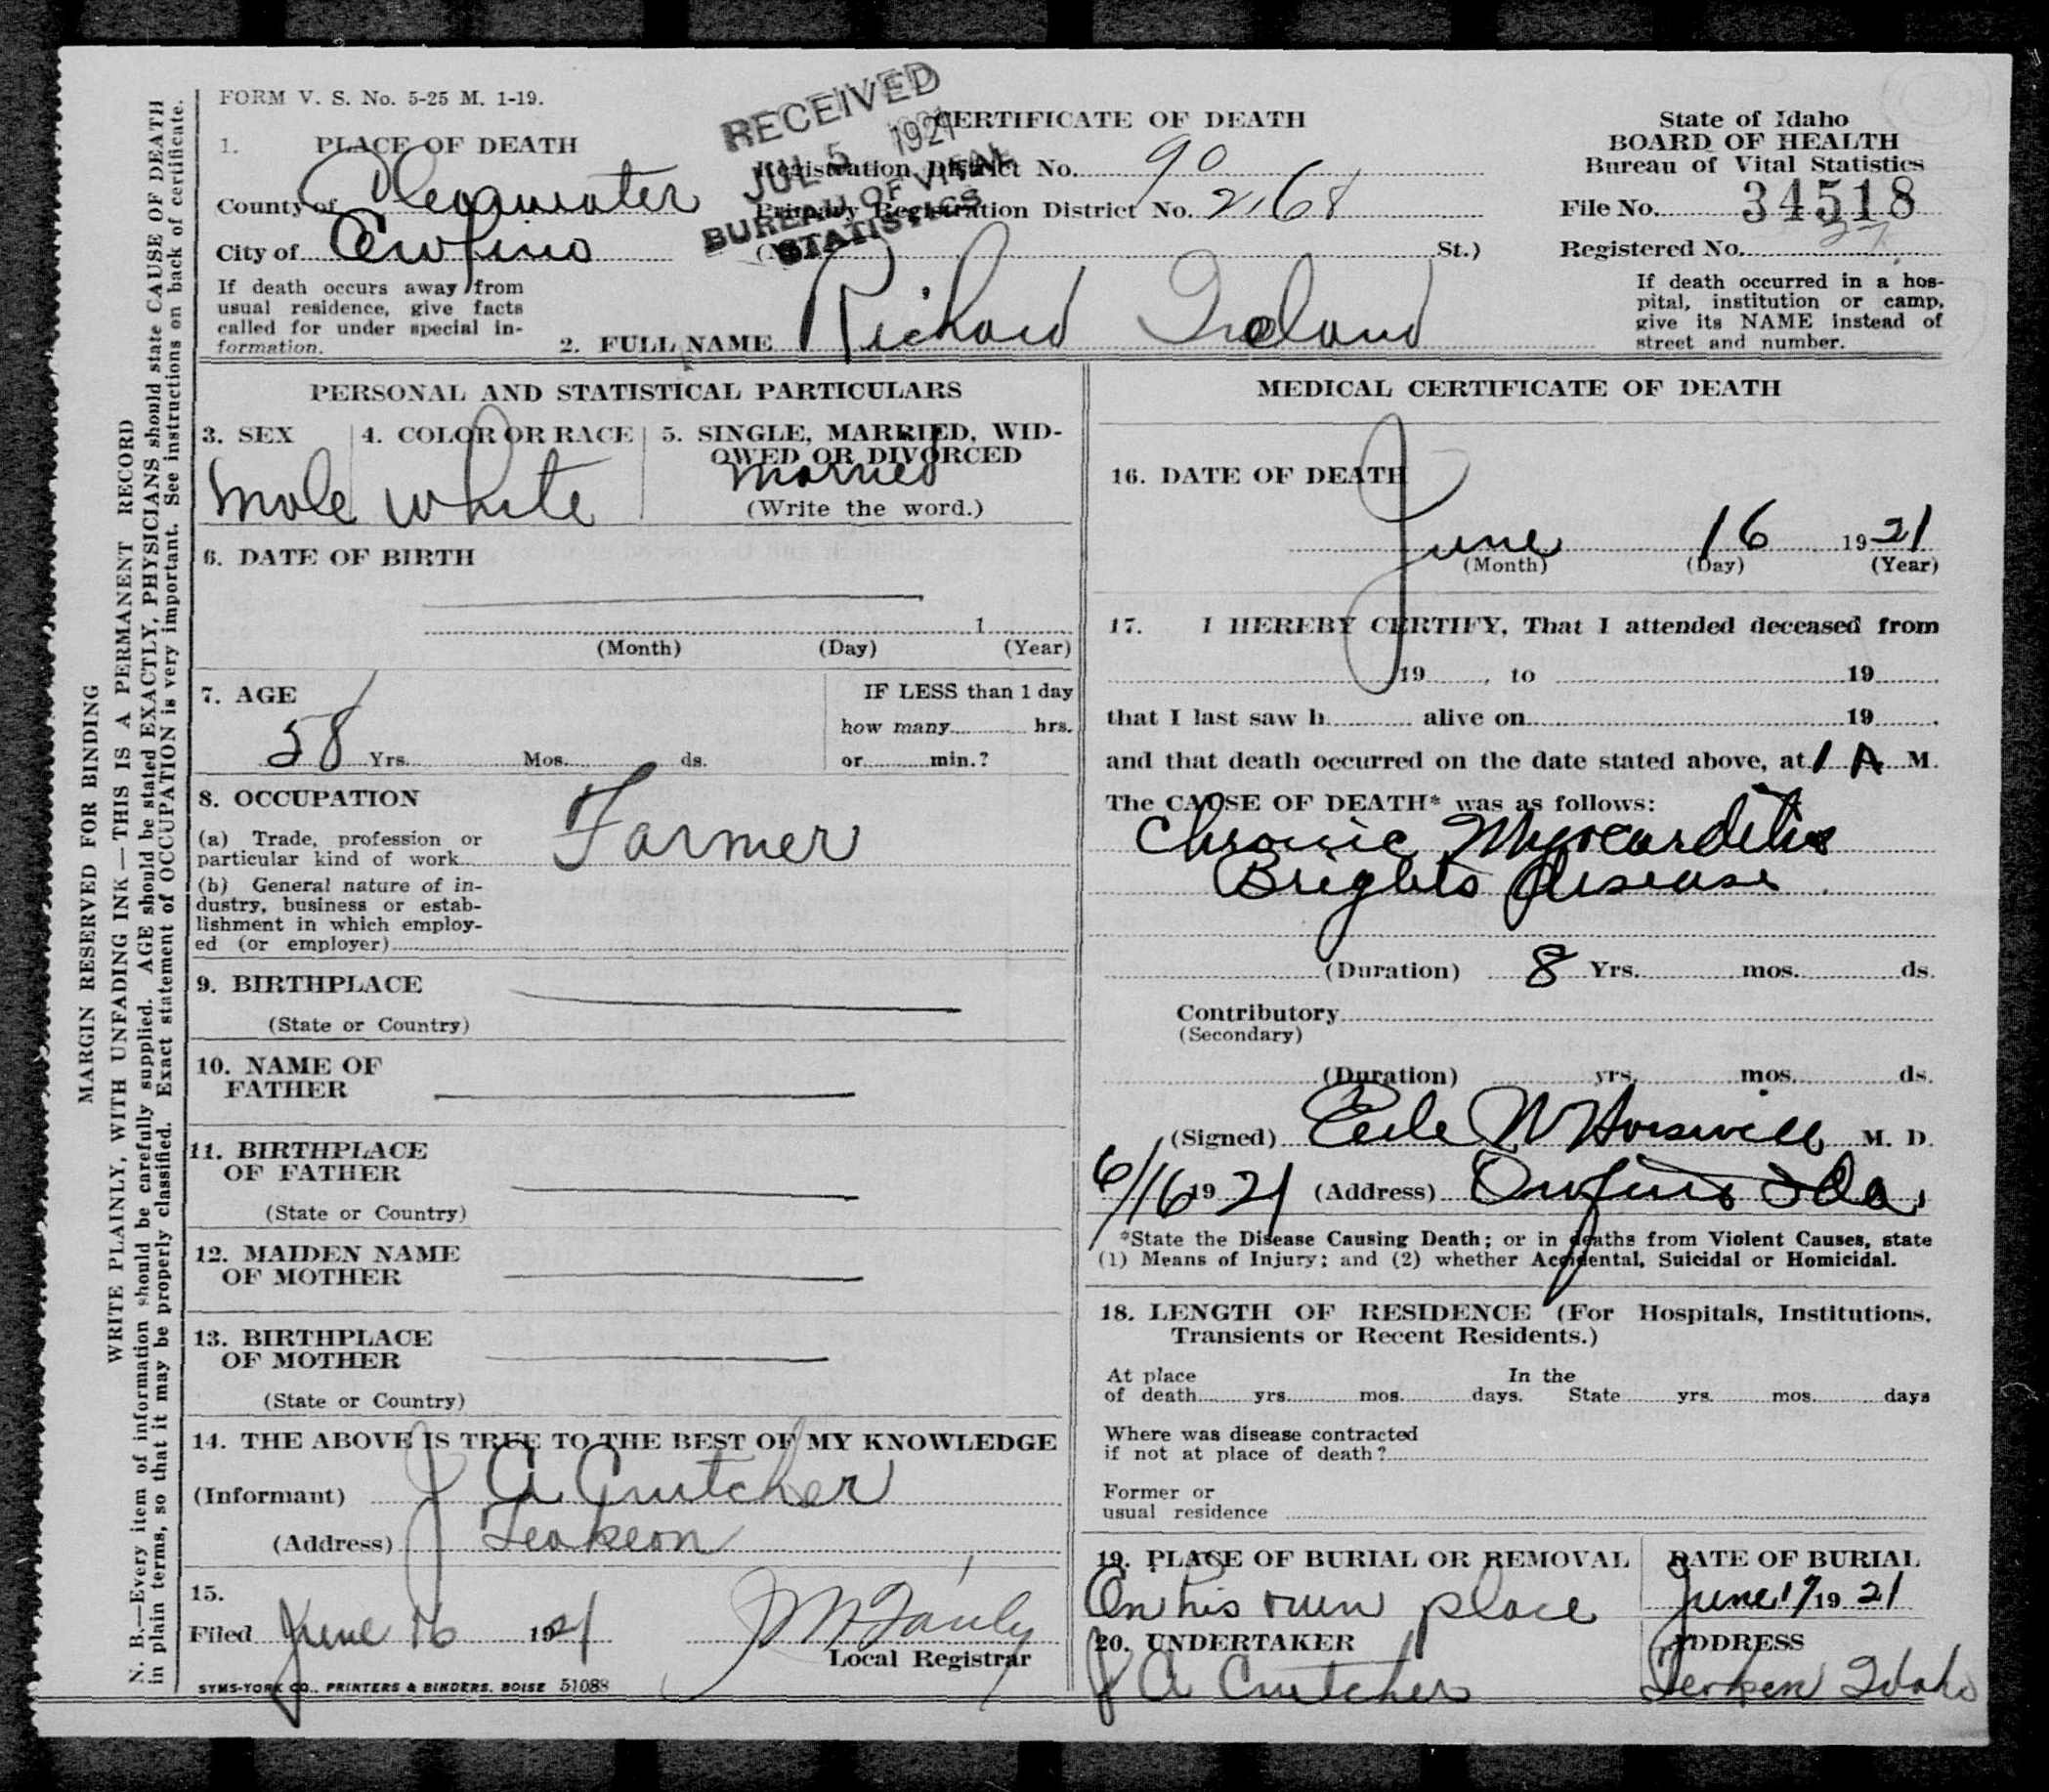 FORM V. S. No. 5-25 M. 1-19.
RECEIVED
JUL 5 1921
BUREAU OF VITAL
STATISTICS
CERTIFICATE OF DEATH
State of Idaho
BOARD OF HEALTH
Bureau of Vital Statistics
1. PLACE OF DEATH
Registration District No. 90
County of Clearwater
Primary Registration District No. 2168
File No. 34518
City of Orofino
St.)
Registered No. 27
If death occurs away from
usual residence, give facts
called for under special in-
formation.
If death occurred in a hos-
pital, institution or camp,
give its NAME instead of
street and number.
2. FULL NAME Richard Ireland
PERSONAL AND STATISTICAL PARTICULARS
3. SEX
Male
4. COLOR OR RACE
White
5. SINGLE, MARRIED, WID-
OWED OR DIVORCED
Married
(Write the word.)
6. DATE OF BIRTH
1
(Month) (Day) (Year)
7. AGE
58 Yrs. Mos. ds.
IF LESS than 1 day
how many hrs.
or min.?
8. OCCUPATION
(a) Trade, profession or
particular kind of work Farmer
(b) General nature of in-
dustry, business or estab-
lishment in which employ-
ed (or employer)
9. BIRTHPLACE
(State or Country)
10. NAME OF
FATHER
11. BIRTHPLACE
OF FATHER
(State or Country)
12. MAIDEN NAME
OF MOTHER
13. BIRTHPLACE
OF MOTHER
(State or Country)
14. THE ABOVE IS TRUE TO THE BEST OF MY KNOWLEDGE
(Informant) J A Crutcher
(Address) Teakean
15.
Filed June 16 1921
J M Fairly
Local Registrar
SYMS-YORK CO., PRINTERS & BINDERS, BOISE 51088
MEDICAL CERTIFICATE OF DEATH
16. DATE OF DEATH
June 16 1921
(Month) (Day) (Year)
17. I HEREBY CERTIFY, That I attended deceased from
19 , to 19 .
that I last saw h alive on 19 .
and that death occurred on the date stated above, at 1 A M.
The CAUSE OF DEATH* was as follows:
Chronic Myocarditis
Brights Disease
(Duration) 8 Yrs. mos. ds.
Contributory
(Secondary)
(Duration) yrs. mos. ds.
(Signed) Earle W Horswill M. D.
6/16 1921 (Address) Orofino Ida.
*State the Disease Causing Death; or in deaths from Violent Causes, state
(1) Means of Injury; and (2) whether Accidental, Suicidal or Homicidal.
18. LENGTH OF RESIDENCE (For Hospitals, Institutions,
Transients or Recent Residents.)
At place In the
of death yrs. mos. days. State yrs. mos. days
Where was disease contracted
if not at place of death?
Former or
usual residence
19. PLACE OF BURIAL OR REMOVAL
On his own place
DATE OF BURIAL
June 17 1921
20. UNDERTAKER
J A Crutcher
ADDRESS
Teaken Idaho
MARGIN RESERVED FOR BINDING
WRITE PLAINLY, WITH UNFADING INK—THIS IS A PERMANENT RECORD
N. B.—Every item of information should be carefully supplied. AGE should be stated EXACTLY, PHYSICIANS should state CAUSE OF DEATH
in plain terms, so that it may be properly classified. Exact statement of OCCUPATION is very important. See instructions on back of certificate.